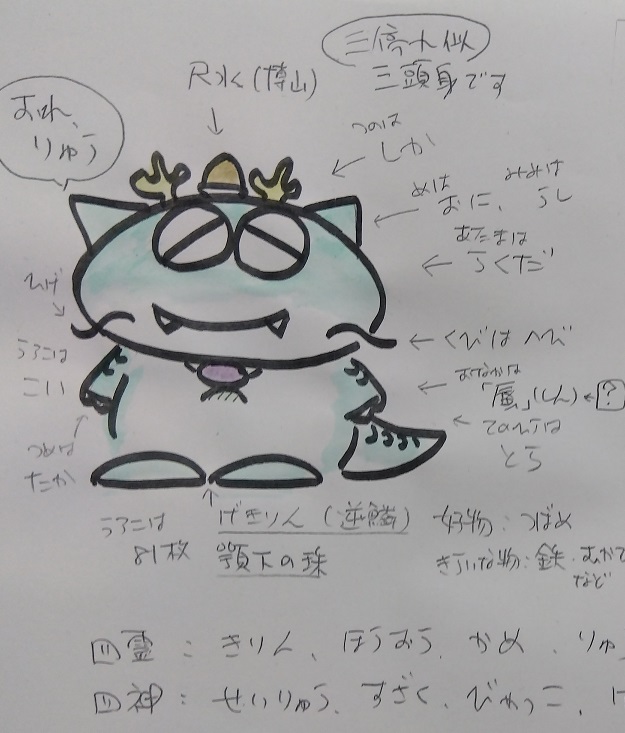 三停九似
三頭身です
尺水(博山)
おれ、
りゅう
つのは
しか
めは
おに、
みみは
うし
あたまは
らくだ
ひげ
くびはへび
うろこは
こい
おなかは
「蜃」(しん)←?
てのひらは
とら
つめは
たか
うろこは
81枚
げきりん(逆鱗)
顎下の珠
好物:つばめ
きらいな物:鉄・むかで
など
四霊:きりん、ほうおう、かめ、りゅ
四神:せいりゅう、すざく、びゃっこ、